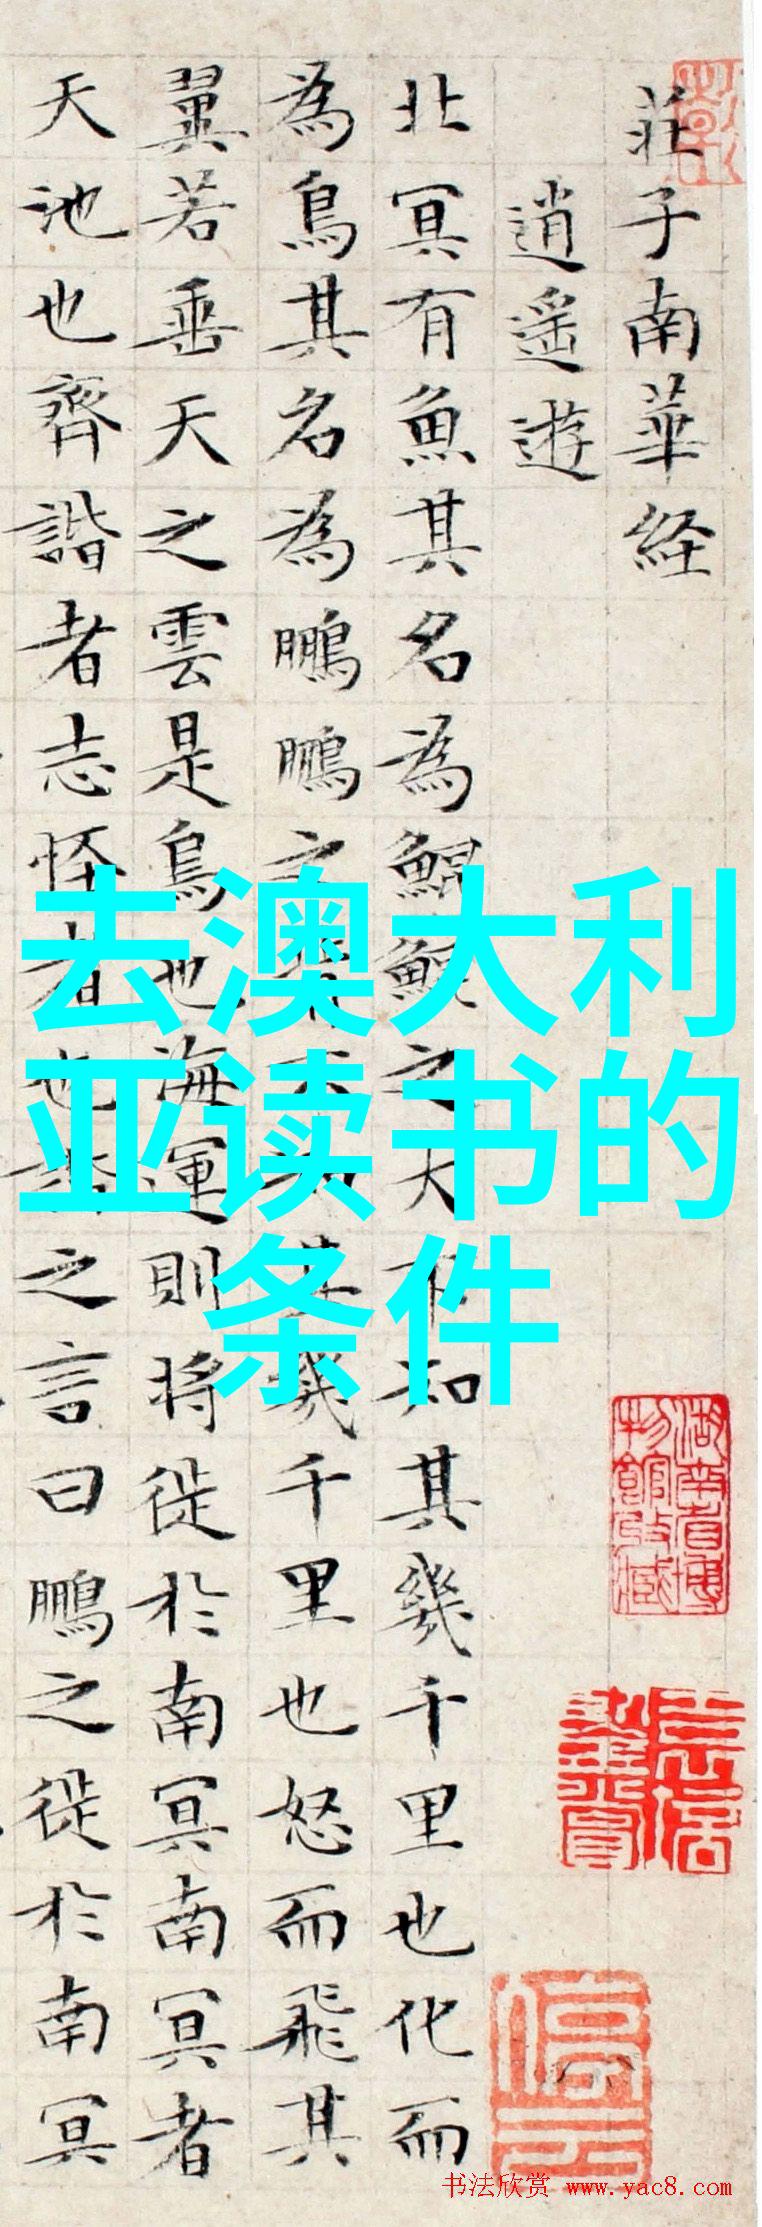 莊子南華経
逍遙遊
北冥有魚其名為鯤鯤之大不知其幾千里也化而
為鳥其名為鵬鵬之背不知其幾千里也怒而飛其
翼若垂天之雲是鳥也海運則將徙於南冥南冥者
天池也齊諧者志怪者也諧之言曰鵬之徙於南冥
去澳大利
亚读书的
条件
湖南省博
物館收藏
书法欣赏 www.yac8.com